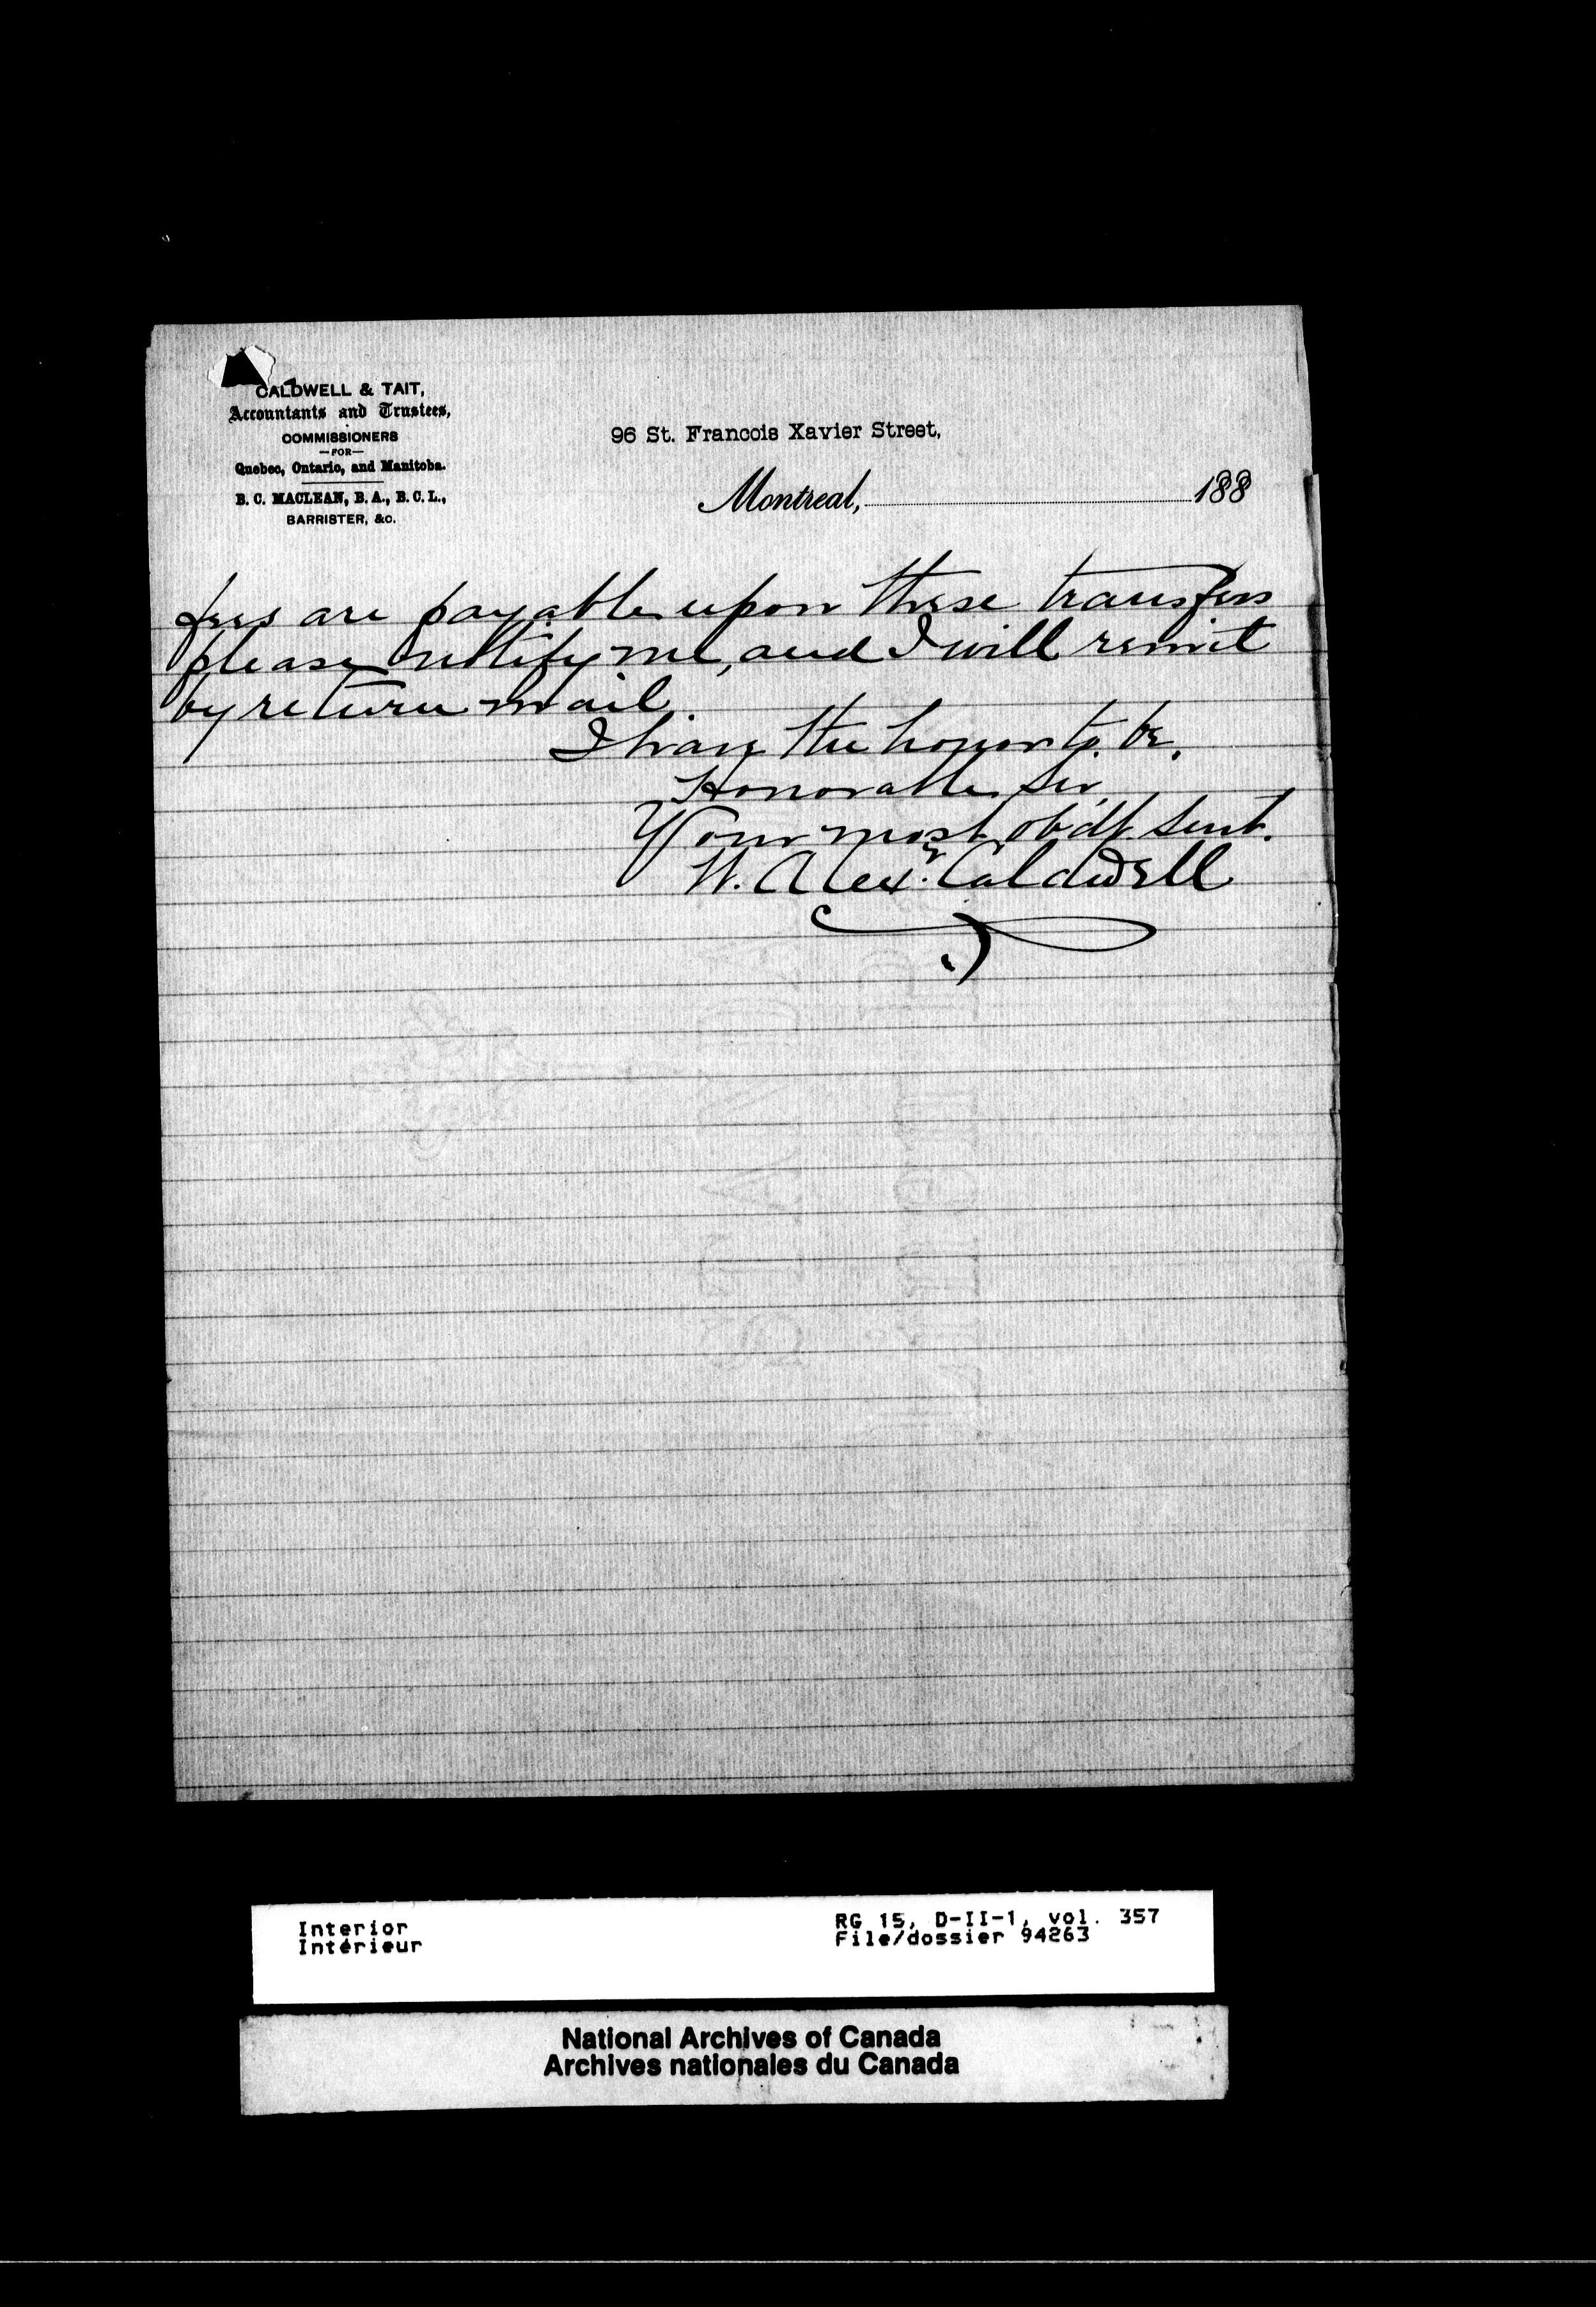 CALDWELL & TAIT,
Accountants and Trustees,
COMMISSIONERS
—FOR—
Quebec, Ontario, and Manitoba.
B. C. MACLEAN, B. A., B. C. L.,
BARRISTER, &c.
96 St. Francois Xavier Street,
Montreal, 188
fees are payable upon these transfers
please notify me, and I will remit
by return mail.
I have the honor to be,
Honorable Sir,
Your most obdt Servt.
W. Alexr. Caldwell
Interior
Intérieur
RG 15, D-II-1, vol. 357
File/dossier 94263
National Archives of Canada
Archives nationales du Canada